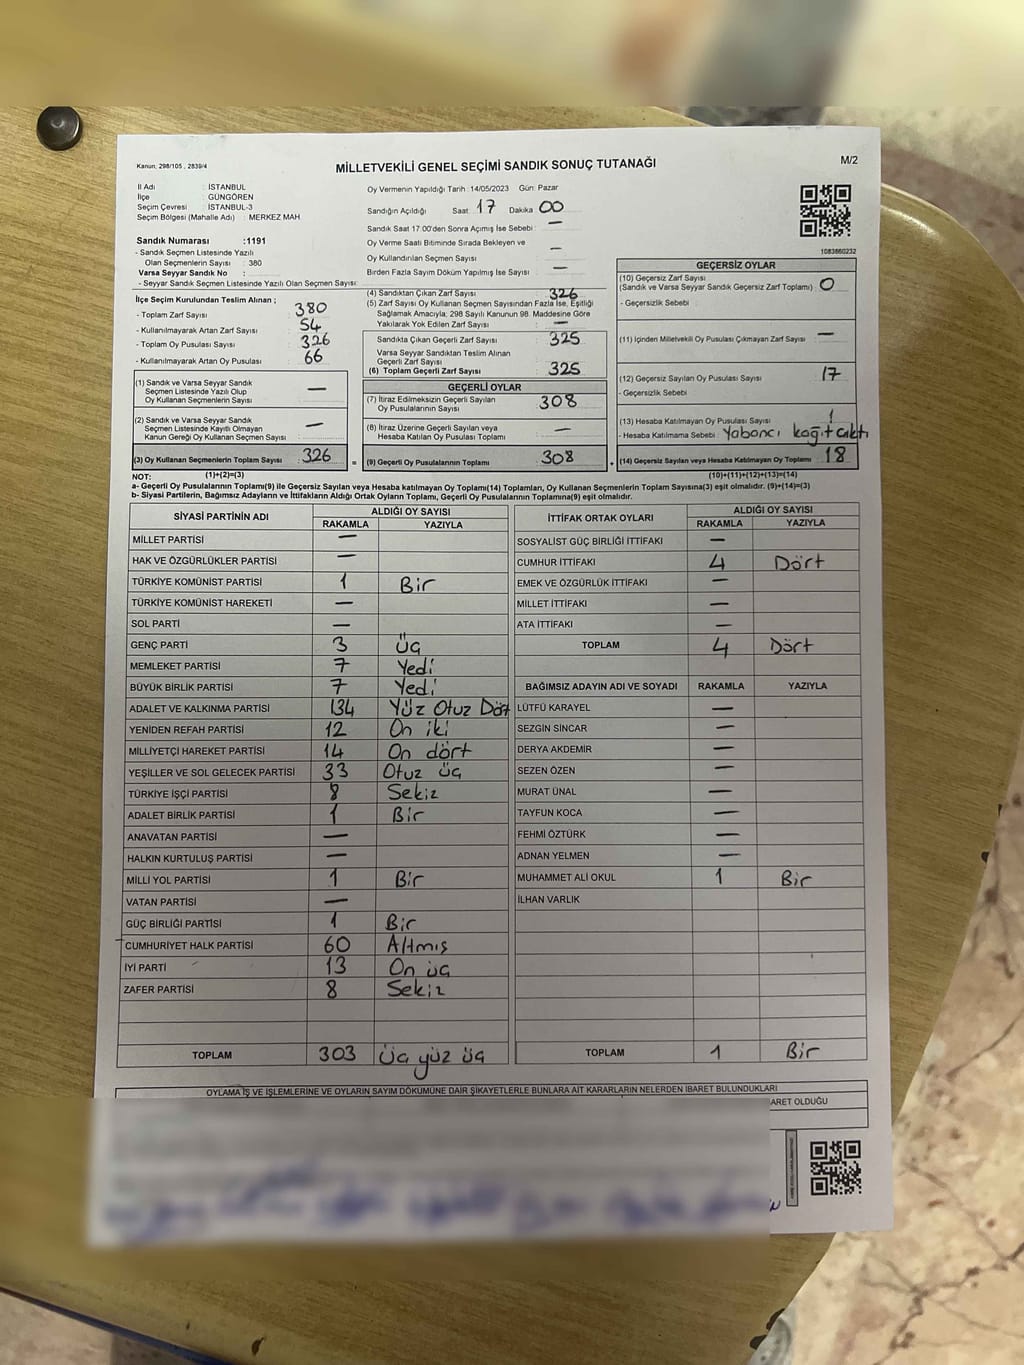 Kanun, 298/105 , 2839/4
MİLLETVEKİLİ GENEL SEÇİMİ SANDIK SONUÇ TUTANAĞI
M/2
İl Adı : İSTANBUL
İlçe : GÜNGÖREN
Seçim Çevresi : İSTANBUL-3
Seçim Bölgesi (Mahalle Adı) : MERKEZ MAH
Sandık Numarası :1191
- Sandık Seçmen Listesinde Yazılı
Olan Seçmenlerin Sayısı : 380
Varsa Seyyar Sandık No :
- Seyyar Sandık Seçmen Listesinde Yazılı Olan Seçmen Sayısı:
İlçe Seçim Kurulundan Teslim Alınan ;
- Toplam Zarf Sayısı 380
- Kullanılmayarak Artan Zarf Sayısı 54
- Toplam Oy Pusulası Sayısı 326
- Kullanılmayarak Artan Oy Pusulası 66
(1) Sandık ve Varsa Seyyar Sandık
Seçmen Listesinde Yazılı Olup
Oy Kullanan Seçmenlerin Sayısı —
(2) Sandık ve Varsa Seyyar Sandık
Seçmen Listesinde Kayıtlı Olmayan
Kanun Gereği Oy Kullanan Seçmen Sayısı —
(3) Oy Kullanan Seçmenlerin Toplam Sayısı 326 =
Oy Vermenin Yapıldığı Tarih :14/05/2023 Gün: Pazar
Sandığın Açıldığı Saat 17 Dakika 00
Sandık Saat 17.00'den Sonra Açımış İse Sebebi : —
Oy Verme Saati Bitiminde Sırada Bekleyen ve
Oy Kullandırılan Seçmen Sayısı —
Birden Fazla Sayım Döküm Yapılmış İse Sayısı —
(4) Sandıktan Çıkan Zarf Sayısı 326
(5) Zarf Sayısı Oy Kullanan Seçmen Sayısından Fazla İse, Eşitliği
Sağlamak Amacıyla; 298 Sayılı Kanunun 98. Maddesine Göre
Yakılarak Yok Edilen Zarf Sayısı —
Sandıkta Çıkan Geçerli Zarf Sayısı 325
Varsa Seyyar Sandıktan Teslim Alınan
Geçerli Zarf Sayısı
(6) Toplam Geçerli Zarf Sayısı 325
GEÇERLİ OYLAR
(7) İtiraz Edilmeksizin Geçerli Sayılan
Oy Pusulalarının Sayısı 308
(8) İtiraz Üzerine Geçerli Sayılan veya
Hesaba Katılan Oy Pusulası Toplamı —
(9) Geçerli Oy Pusulalarının Toplamı 308 +
1083860232
GEÇERSİZ OYLAR
(10) Geçersiz Zarf Sayısı
(Sandık ve Varsa Seyyar Sandık Geçersiz Zarf Toplamı) : 0
- Geçersizlik Sebebi :
(11) İçinden Milletvekili Oy Pusulası Çıkmayan Zarf Sayısı —
(12) Geçersiz Sayılan Oy Pusulası Sayısı 17
- Geçersizlik Sebebi :
(13) Hesaba Katılmayan Oy Pusulası Sayısı 1
- Hesaba Katılmama Sebebi Yabancı kağıt çıktı
(14) Geçersiz Sayılan veya Hesaba Katılmayan Oy Toplamı 18
NOT: (1)+(2)=(3) (10)+(11)+(12)+(13)=(14)
a- Geçerli Oy Pusulalarının Toplamı(9) ile Geçersiz Sayılan veya Hesaba katılmayan Oy Toplamı(14) Toplamları, Oy Kullanan Seçmenlerin Toplam Sayısına(3) eşit olmalıdır. (9)+(14)=(3)
b- Siyasi Partilerin, Bağımsız Adayların ve İttifakların Aldığı Ortak Oyların Toplamı, Geçerli Oy Pusulalarının Toplamına(9) eşit olmalıdır.
SİYASİ PARTİNİN ADI ALDIĞI OY SAYISI
RAKAMLA YAZIYLA
MİLLET PARTİSİ —
HAK VE ÖZGÜRLÜKLER PARTİSİ —
TÜRKİYE KOMÜNİST PARTİSİ 1 Bir
TÜRKİYE KOMÜNİST HAREKETİ —
SOL PARTİ —
GENÇ PARTİ 3 Üç
MEMLEKET PARTİSİ 7 Yedi
BÜYÜK BİRLİK PARTİSİ 7 Yedi
ADALET VE KALKINMA PARTİSİ 134 Yüz Otuz Dört
YENİDEN REFAH PARTİSİ 12 On iki
MİLLİYETÇİ HAREKET PARTİSİ 14 On dört
YEŞİLLER VE SOL GELECEK PARTİSİ 33 Otuz üç
TÜRKİYE İŞÇİ PARTİSİ 8 Sekiz
ADALET BİRLİK PARTİSİ 1 Bir
ANAVATAN PARTİSİ —
HALKIN KURTULUŞ PARTİSİ —
MİLLİ YOL PARTİSİ 1 Bir
VATAN PARTİSİ —
GÜÇ BİRLİĞİ PARTİSİ 1 Bir
CUMHURİYET HALK PARTİSİ 60 Altmış
İYİ PARTİ 13 On üç
ZAFER PARTİSİ 8 Sekiz
TOPLAM 303 üç yüz üç
İTTİFAK ORTAK OYLARI ALDIĞI OY SAYISI
RAKAMLA YAZIYLA
SOSYALİST GÜÇ BİRLİĞİ İTTİFAKI —
CUMHUR İTTİFAKI 4 Dört
EMEK VE ÖZGÜRLÜK İTTİFAKI —
MİLLET İTTİFAKI —
ATA İTTİFAKI —
TOPLAM 4 Dört
BAĞIMSIZ ADAYIN ADI VE SOYADI RAKAMLA YAZIYLA
LÜTFÜ KARAYEL —
SEZGİN SİNCAR —
DERYA AKDEMİR —
SEZEN ÖZEN —
MURAT ÜNAL —
TAYFUN KOCA —
FEHMİ ÖZTÜRK —
ADNAN YELMEN —
MUHAMMET ALİ OKUL 1 Bir
İLHAN VARLIK
TOPLAM 1 Bir
OYLAMA İŞ VE İŞLEMLERİNE VE OYLARIN SAYIM DÖKÜMÜNE DAİR ŞİKAYETLERLE BUNLARA AİT KARARLARIN NELERDEN İBARET BULUNDUKLARI
ARET OLDUĞU